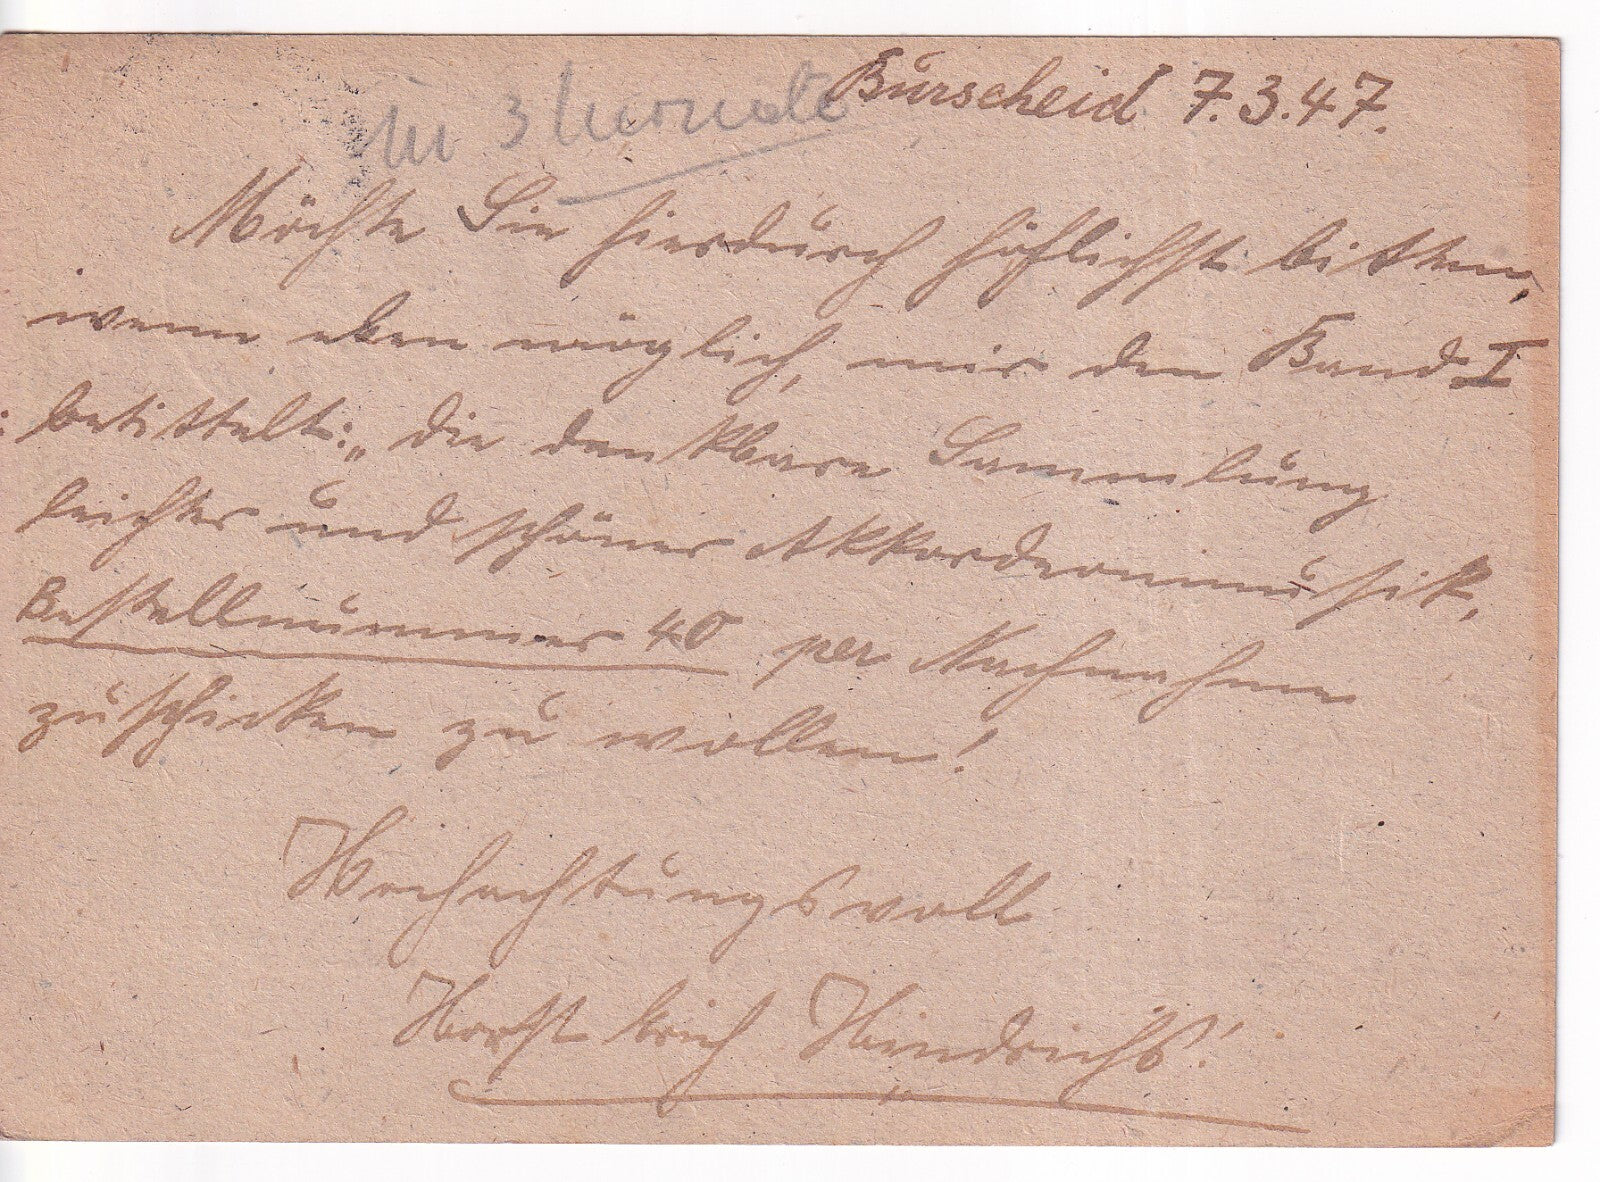 Burscheid 7.3.47.
In 3 Monate
Möchte Sie hierdurch höflichst bitten,
wenn eben möglich, mir den Band I
betittelt: „die dankbare Sammlung
leichter und schöner Akkordeonmusik,
Bestellnummer 40 per Nachnahme
zuschicken zu wollen!
Hochachtungsvoll
Horst Erich Hindrichs!